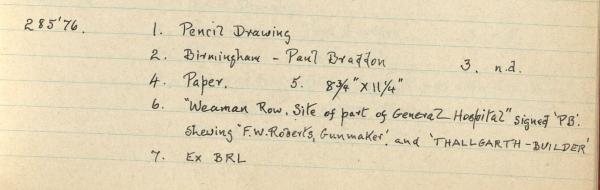 285'76. 1. Pencil Drawing
2. Birmingham - Paul Braddon 3. n.d.
4. Paper. 5. 8¾" X 11¼"
6. "Weaman Row. Site of part of General Hospital" signed 'PB'.
shewing 'F.W. Roberts, Gunmaker'. and 'THALLGARTH-BUILDER'
7. Ex BRL